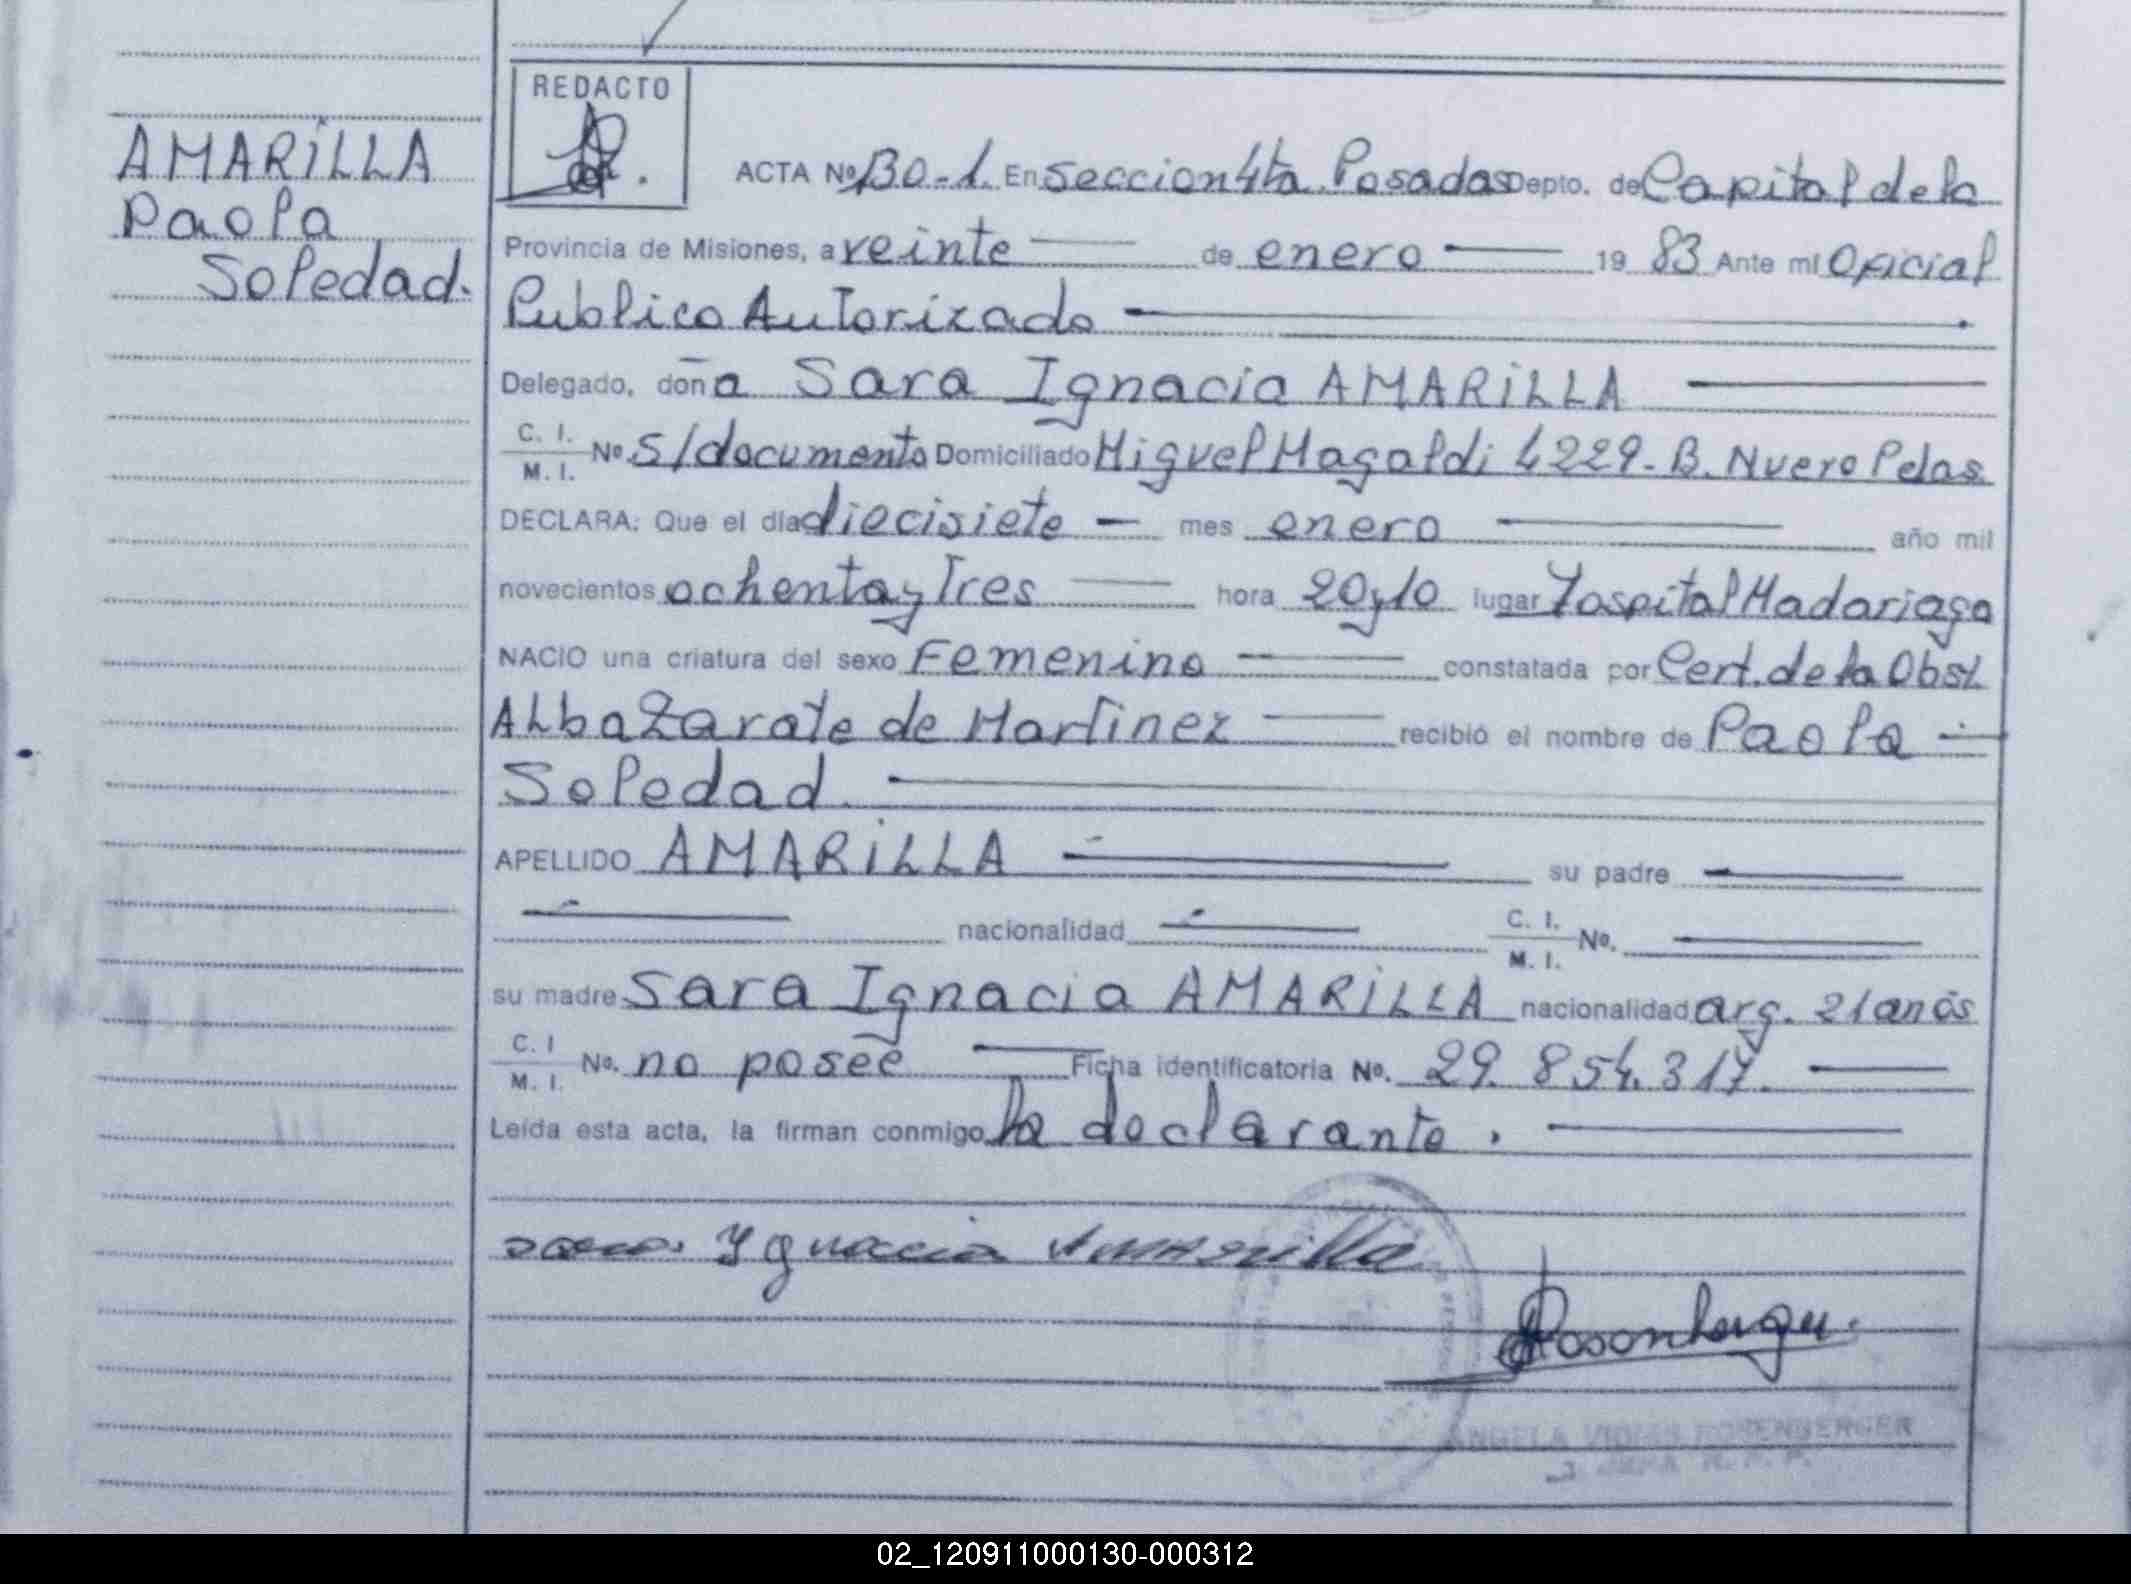 AMARiLLA
Paola
Soledad.
REDACTO
ACTA Nº 130-1. En Seccion 4ta Posadas Depto. de Capital de la
Provincia de Misiones, a veinte de enero 19 83 Ante mí Oficial
Publico Autorizado
Delegado, doña Sara Ignacia AMARiLLA
C. I. / M. I. Nº S/documento Domiciliado Miguel Magaldi 4229. B. Nuevo Pelas.
DECLARA: Que el día diecisiete mes enero año mil
novecientos ochenta y Tres hora 20 y 10 lugar Hospital Madariaga
NACIO una criatura del sexo Femenino constatada por Cert. de la Obst.
Alba Zarate de Martinez recibió el nombre de Paola
Soledad.
APELLIDO AMARiLLA su padre
nacionalidad C. I. / M. I. Nº.
su madre Sara Ignacia AMARiLLA nacionalidad arg. 21 años
C. I / M. I. Nº. no posee Ficha identificatoria Nº. 29.854.317.
Leída esta acta, la firman conmigo la declarante.
Ygnacia Amarilla
Rosenberger
ANGELA ROSENBERGER
02_120911000130-000312